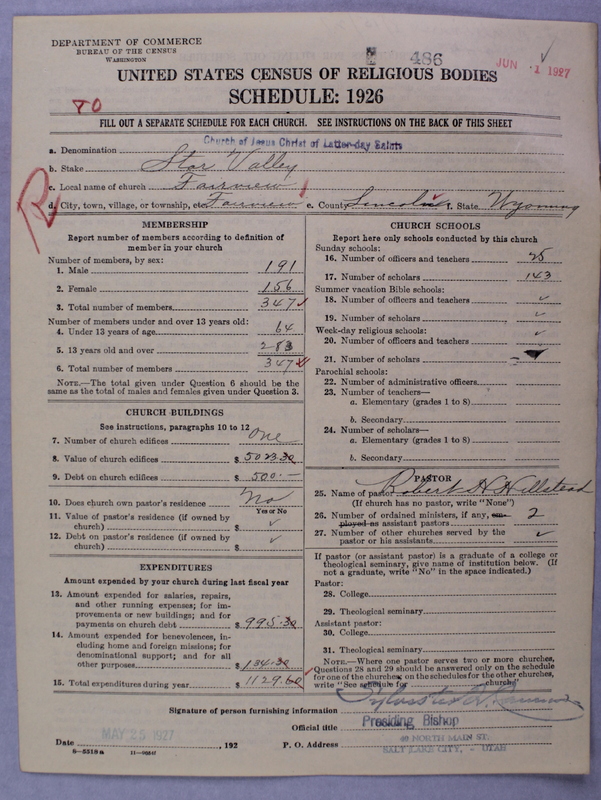 DEPARTMENT OF COMMERCE
BUREAU OF THE CENSUS
WASHINGTON
486
JUN 1 1927
UNITED STATES CENSUS OF RELIGIOUS BODIES
SCHEDULE: 1926
FILL OUT A SEPARATE SCHEDULE FOR EACH CHURCH. SEE INSTRUCTIONS ON THE BACK OF THIS SHEET
a. Denomination Church of Jesus Christ of Latter-day Saints
b. Stake Star Valley
c. Local name of church Fairview
d. City, town, village, or township, etc. Fairview e. County Lincoln f. State Wyoming
MEMBERSHIP
Report number of members according to definition of
member in your church
Number of members, by sex:
1. Male 191
2. Female 156
3. Total number of members 347
Number of members under and over 13 years old:
4. Under 13 years of age 64
5. 13 years old and over 283
6. Total number of members 347
NOTE.—The total given under Question 6 should be the
same as the total of males and females given under Question 3.
CHURCH BUILDINGS
See instructions, paragraphs 10 to 12
7. Number of church edifices one
8. Value of church edifices $ 5023.30
9. Debt on church edifices $ 500.—
10. Does church own pastor's residence No
Yes or No
11. Value of pastor's residence (if owned by
church) $ ✓
12. Debt on pastor's residence (if owned by
church) $ ✓
EXPENDITURES
Amount expended by your church during last fiscal year
13. Amount expended for salaries, repairs,
and other running expenses; for im-
provements or new buildings; and for
payments on church debt $ 995.30
14. Amount expended for benevolences, in-
cluding home and foreign missions; for
denominational support; and for all
other purposes $ 134.30
15. Total expenditures during year $ 1129.60
CHURCH SCHOOLS
Report here only schools conducted by this church
Sunday schools:
16. Number of officers and teachers 25
17. Number of scholars 143
Summer vacation Bible schools:
18. Number of officers and teachers ✓
19. Number of scholars ✓
Week-day religious schools:
20. Number of officers and teachers ✓
21. Number of scholars
Parochial schools:
22. Number of administrative officers
23. Number of teachers—
a. Elementary (grades 1 to 8)
b. Secondary
24. Number of scholars—
a. Elementary (grades 1 to 8)
b. Secondary
PASTOR
25. Name of pastor Robert H. Hillstead
(If church has no pastor, write "None")
26. Number of ordained ministers, if any, em-
ployed as assistant pastors 2
27. Number of other churches served by the
pastor or his assistants ✓
If pastor (or assistant pastor) is a graduate of a college or
theological seminary, give name of institution below. (If
not a graduate, write "No" in the space indicated.)
Pastor:
28. College
29. Theological seminary
Assistant pastor:
30. College
31. Theological seminary
NOTE.—Where one pastor serves two or more churches,
Questions 28 and 29 should be answered only on the schedule
for one of the churches; on the schedules for the other churches,
write "See schedule for church"
Signature of person furnishing information Sylvester Q. Cannon
Official title Presiding Bishop
Date MAY 25 1927, 192 P. O. Address 40 NORTH MAIN ST.
SALT LAKE CITY, - UTAH
8-5318a 11-9684f